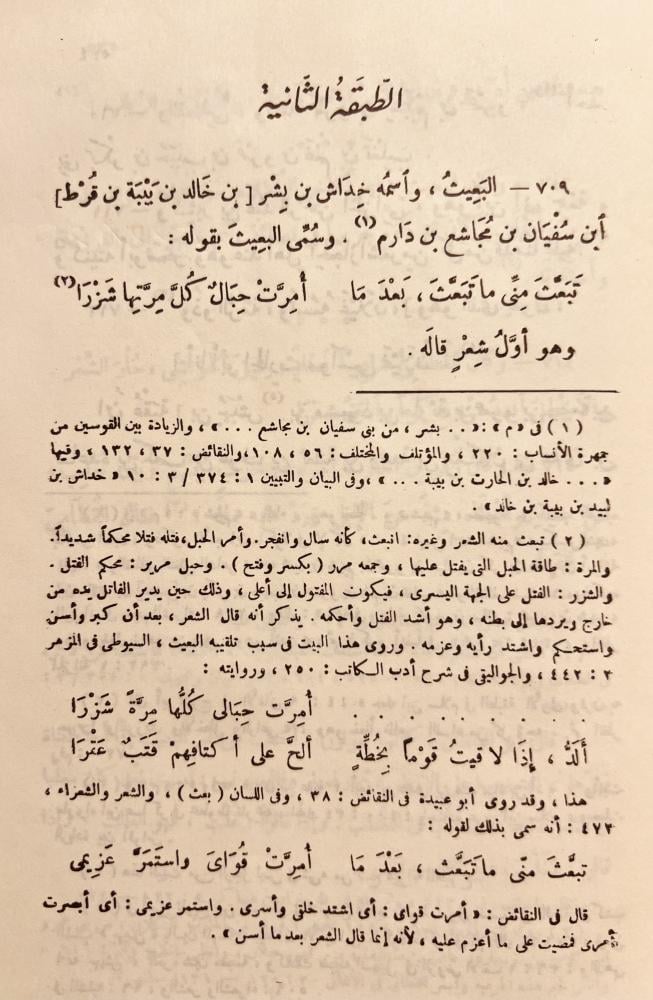 الطَّبَقَةُ الثَّانِيَة
٧٠٩ — البَعِيثُ ، وأسمُه خِدَاش بن بِشْر [ بن خَالد بن بَيْبَة بن قُرْط ]
أبن سُفْيَان بن مُجَاشع بن دَارم (١) . وسُمِّى البعيثَ بقوله :
تَبَعَّثَ مِنِّى ما تَبَعَّثَ ، بَعْدَ مَا أُمِرَّتْ حِبَالٌ كُلَّ مِرَّتِها شَزْرَا (٢)
وهو أوَّلُ شِعْرٍ قالَه .
( ١ ) فى « م » : « . . بشر ، من بنى سفيان بن مجاشع . . . » ، والزيادة بين القوسين من
جمهرة الأنساب : ٢٢٠ ، والمؤتلف والمختلف : ٥٦ ، ١٠٨ ، والنقائض : ٣٧ ، ١٣٢ ، وفيها
« . . . خالد بن الحارث بن بيبة . . . » ، وفى البيان والتبيين ١ : ٣٧٤ / ٣ : ١٠ « خداش بن
لبيد بن بيبة بن خالد » .
( ٢ ) تبعث منه الشعر وغيره : انبعث ، كأنه سال وانفجر . وأمر الحبل ، فتله فتلا محكماً شديداً .
والمرة : طاقة الحبل التى يفتل عليها ، وجمعه مرر ( بكسر وفتح ) . وحبل مرير : محكم الفتل .
والشزر : الفتل على الجهة اليسرى ، فيكون المفتول إلى أعلى ، وذلك حين يدير الفاتل يده من
خارج ويردها إلى بطنه ، وهو أشد الفتل وأحكمه . يذكر أنه قال الشعر ، بعد أن كبر وأسن
واستحكم واشتد رأيه وعزمه . وروى هذا البيت فى سبب تلقيبه البعيث ، السيوطى فى المزهر
٢ : ٤٤٢ ، والجواليقى فى شرح أدب الكاتب : ٢٥٠ ، وروايته :
. . . . . . . . . . أُمِرَّت حِبَالى كُلُّها مِرَّةً شَزْرَا
أَلَدُّ ، إِذَا لاقيتُ قَوْماً بِخُطَّةٍ ألحَّ على أكتافِهِمْ قَتَبٌ عَقْرَا
هذا ، وقد روى أبو عبيدة فى النقائض : ٣٨ ، وفى اللسان ( بعث ) ، والشعر والشعراء ،
٤٧٣ : أنه سمى بذلك لقوله :
تبعَّثَ منّى ما تَبَعَّث ، بَعْدَ مَا أُمِرَّتْ قُوَاىَ واستَمَرَّ عَزِيمى
قال فى النقائض : « أمرت قواى : أى اشتد خلقى وأسرى . واستمر عزيمى : أى أبصرت
أمرى فمضيت على ما أعزم عليه ، لأنه إنما قال الشعر بعد ما أسن » .